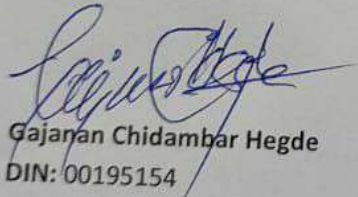 Gajanan Chidambar Hegde
DIN: 00195154